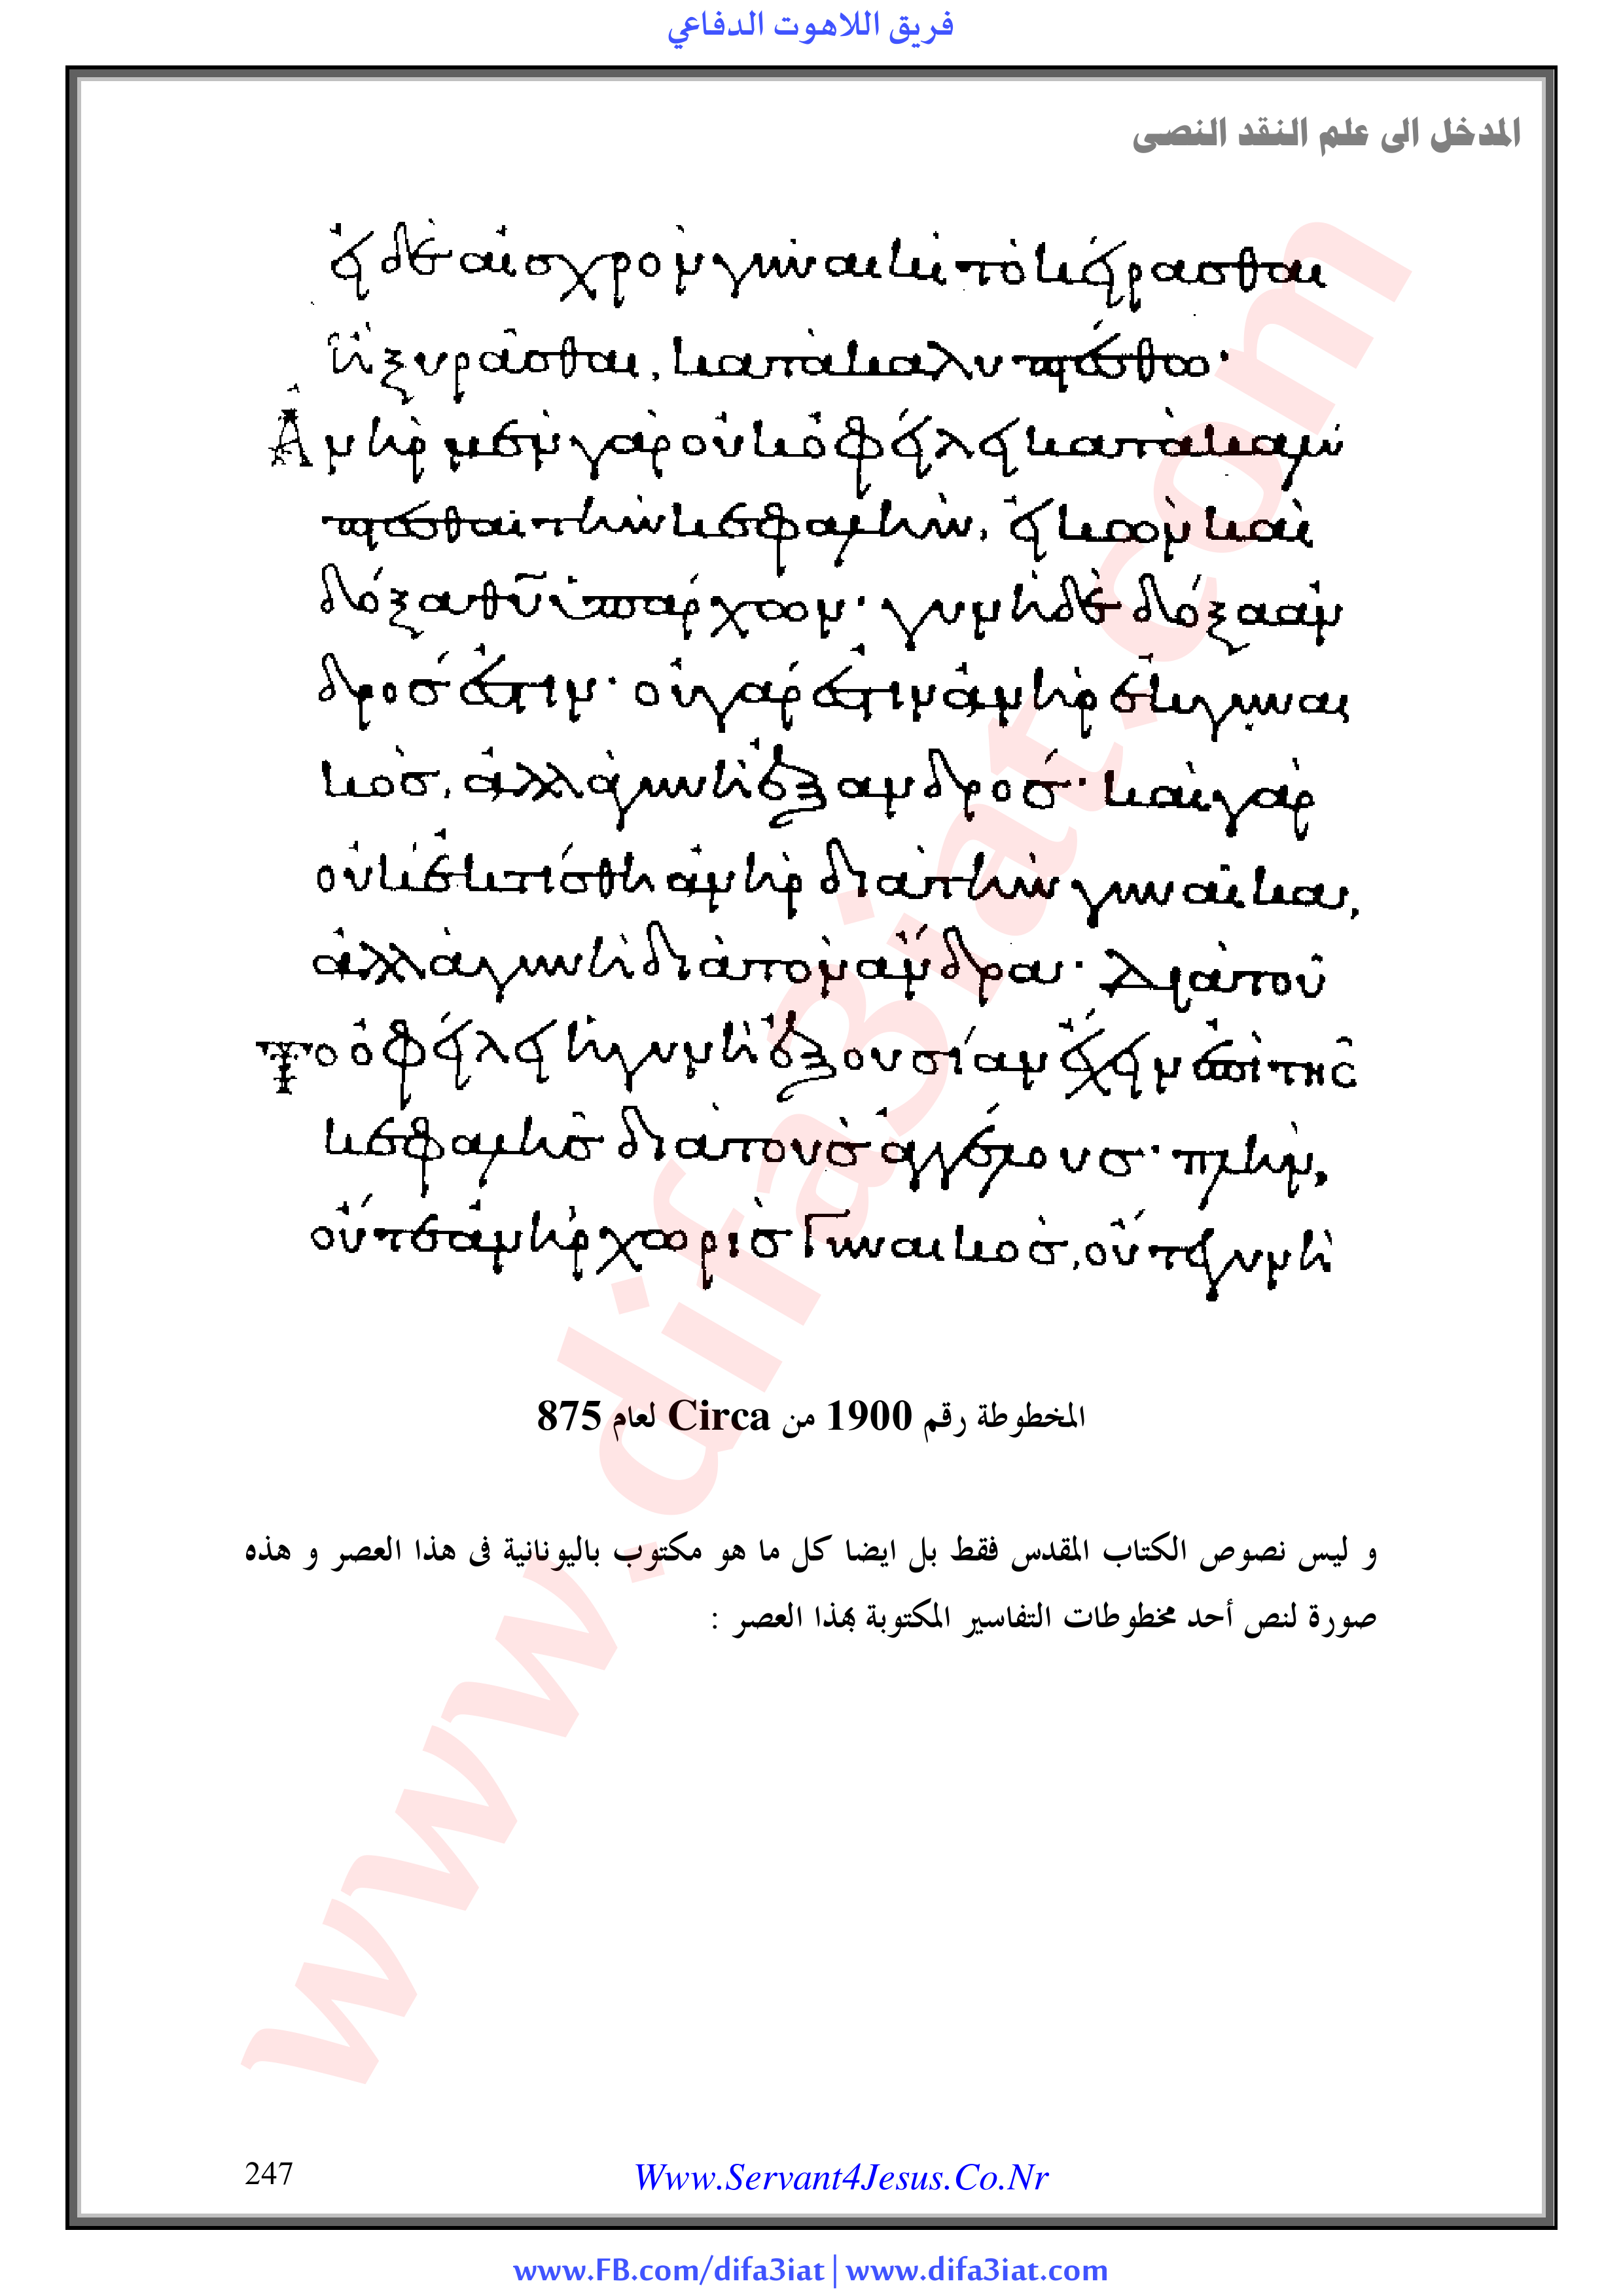 فريق اللاهوت الدفاعي
المدخل الى علم النقد النصى
εἰ δὲ αἰσχρὸν γυναικὶ τὸ κείρασθαι
ἢ ξυρᾶσθαι, κατακαλυπτέσθω·
Ἀνὴρ μὲν γὰρ οὐκ ὀφείλει κατακαλύ
πτεσθαι τὴν κεφαλὴν, εἰκὼν καὶ
δόξα θυ ὑπάρχων· γυνὴ δὲ δόξα ἀν
δρός ἐστιν· οὐ γάρ ἐστιν ἀνὴρ ἐκ γυναι
κὸς, ἀλλὰ γυνὴ ἐξ ανδρός· καὶ γὰρ
οὐκ ἐκτίσθη ἀνὴρ διὰ τὴν γυναῖκα,
ἀλλὰ γυνὴ διὰ τὸν ἄνδρα· Διὰ τοῦ
το ὀφείλει ἡ γυνὴ ἐξουσίαν ἔχειν ἐπὶ τῆς
κεφαλῆς διὰ τοὺς ἀγγέλους· πλὴν,
οὔτε ἀνὴρ χωρὶς γυναικὸς, οὔτε γυνὴ
المخطوطة رقم 1900 من Circa لعام 875
و ليس نصوص الكتاب المقدس فقط بل ايضا كل ما هو مكتوب باليونانية فى هذا العصر و هذه
صورة لنص أحد مخطوطات التفاسير المكتوبة بهذا العصر :
www.difa3iat.com
247
Www.Servant4Jesus.Co.Nr
www.FB.com/difa3iat | www.difa3iat.com